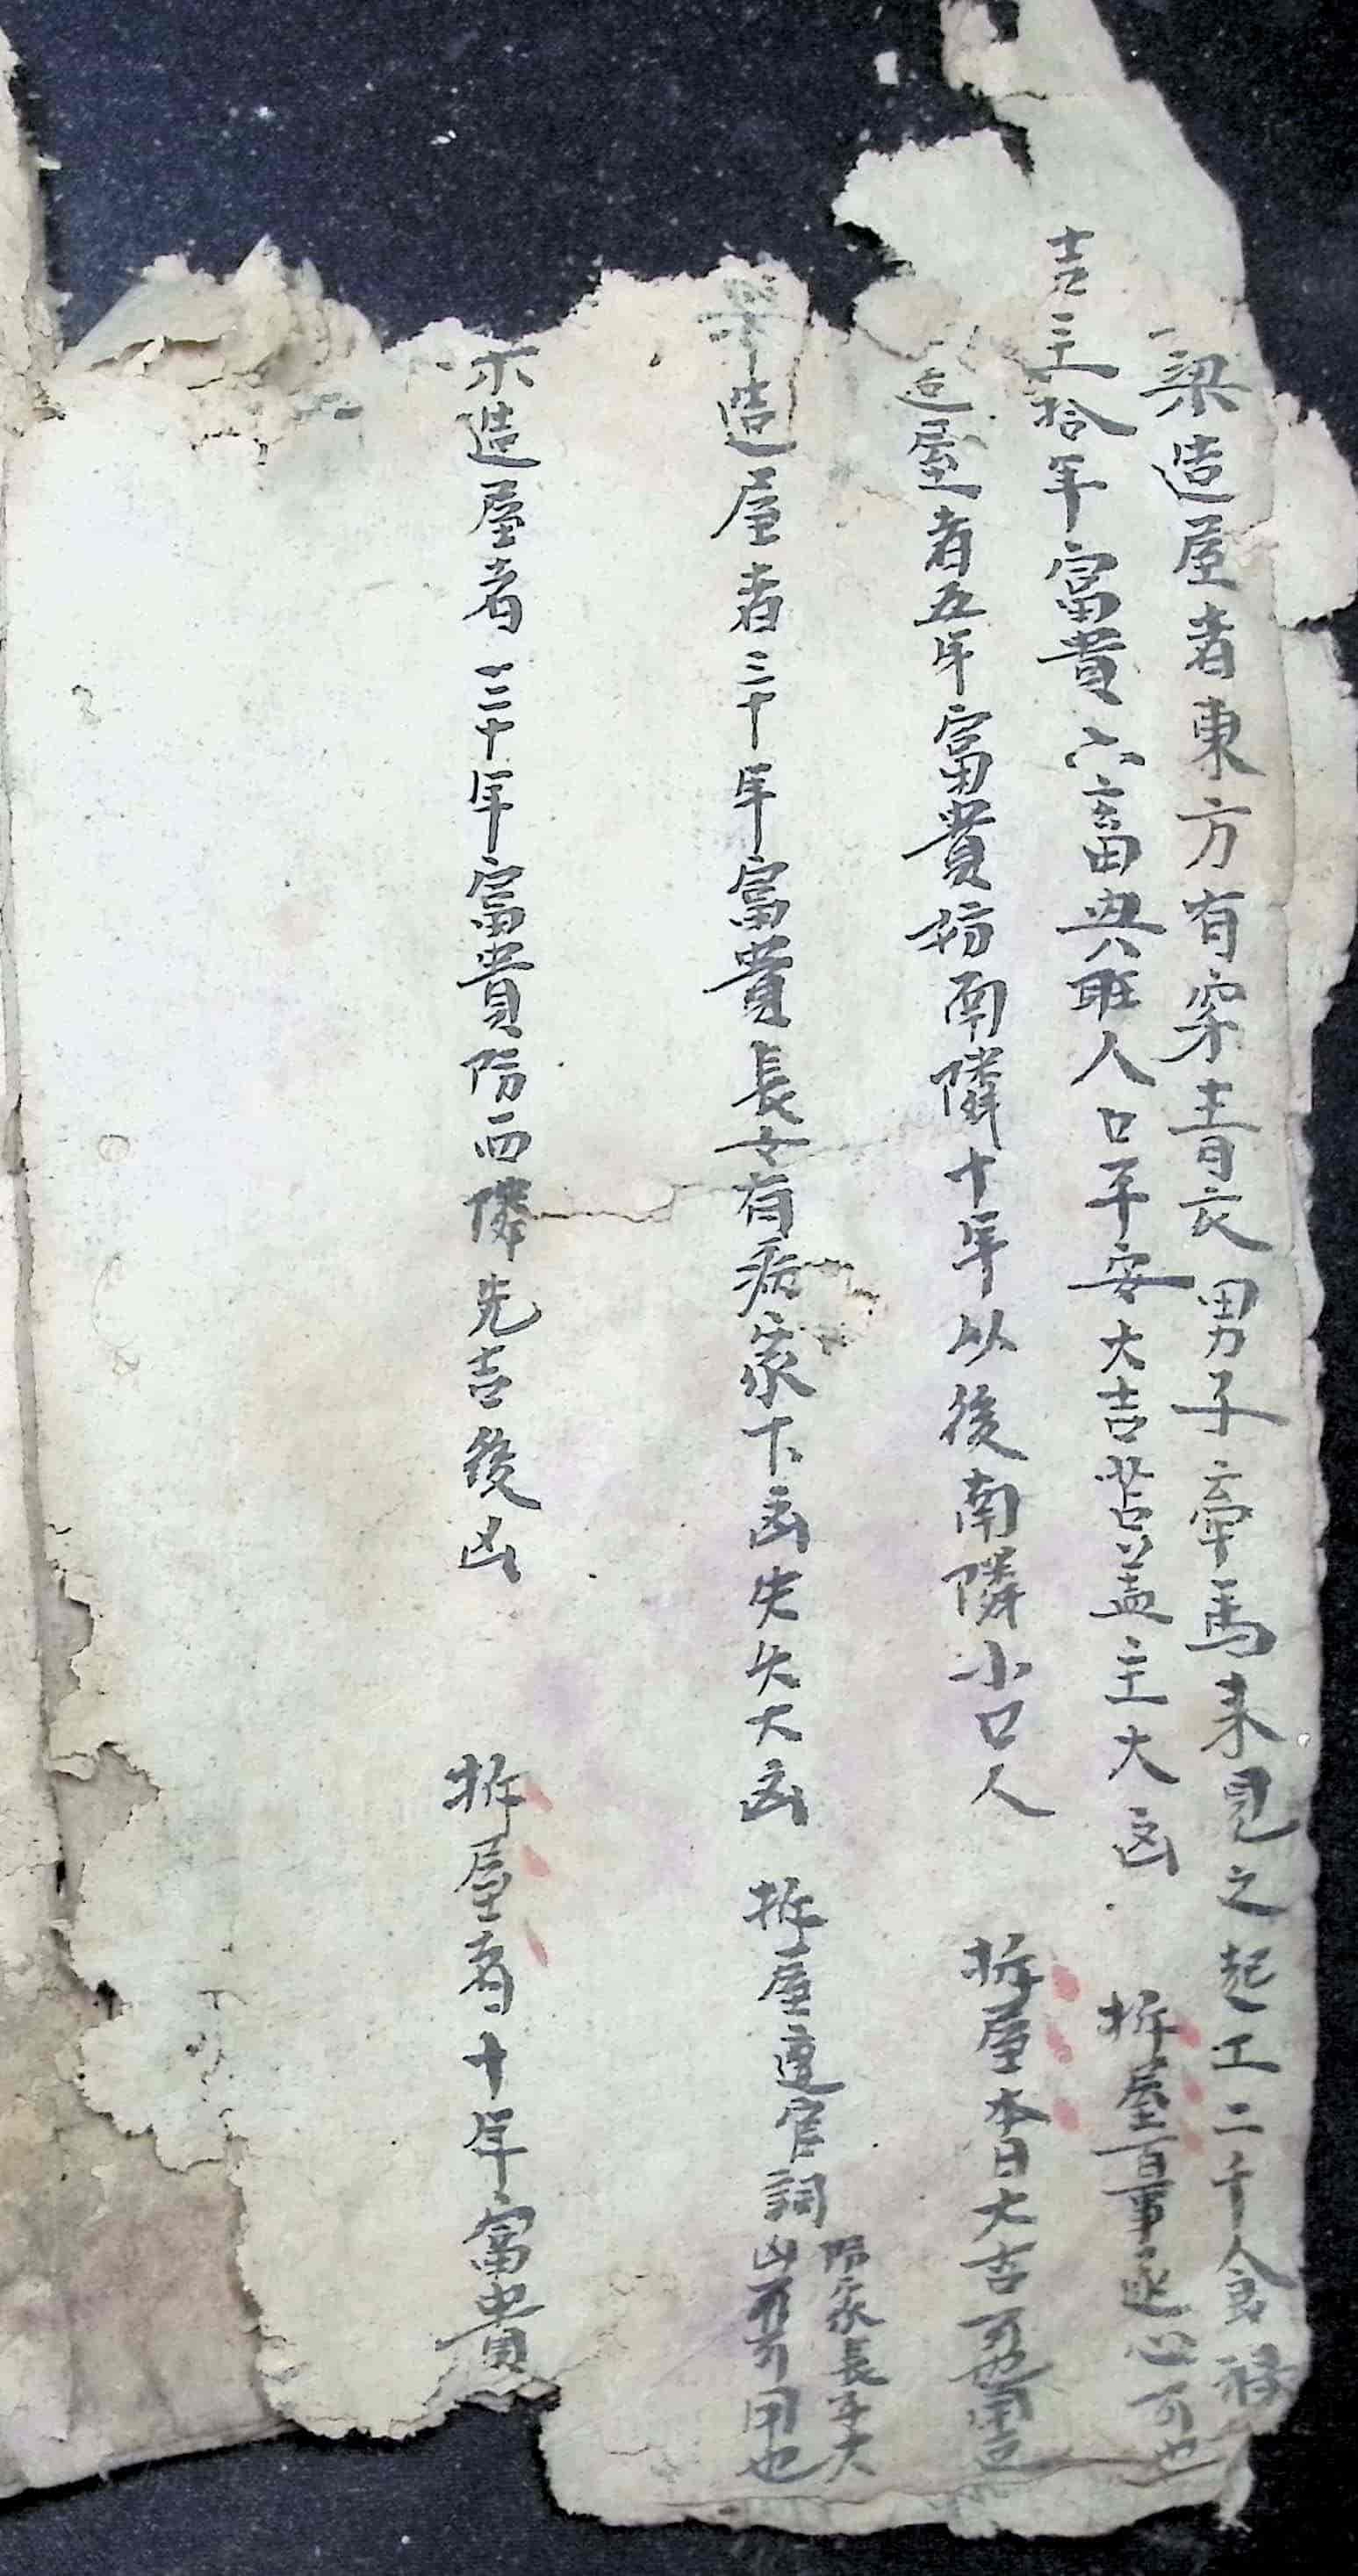 梁造屋者東方有穿青衣男子牽馬来見之起工二千食禄
吉主拾年富貴六畜興旺人口平安大吉苫盖主大凶 拆屋百事遂心可也
造屋者五年富貴妨南隣十年以後南隣小口人 拆屋本日大吉可也用
造屋者三十年富貴長女有病家下凶失火大凶 拆屋遭官詞
防家長子大
凶可用也
示造屋者三十年富貴防西隣先吉後凶 拆屋者十年富貴